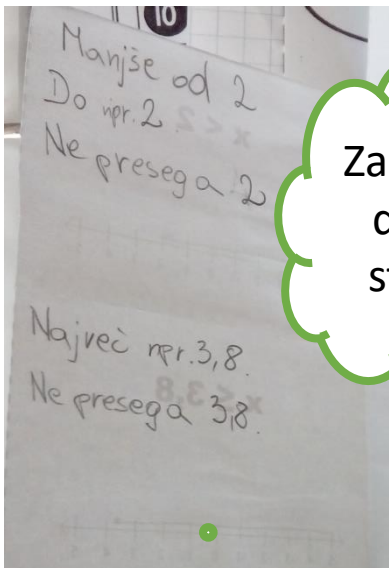 10
Manjše od 2
Do npr. 2
x < 2
Ne presega 2
Za
Največ npr. 3,8.
Ne presega 3,8.